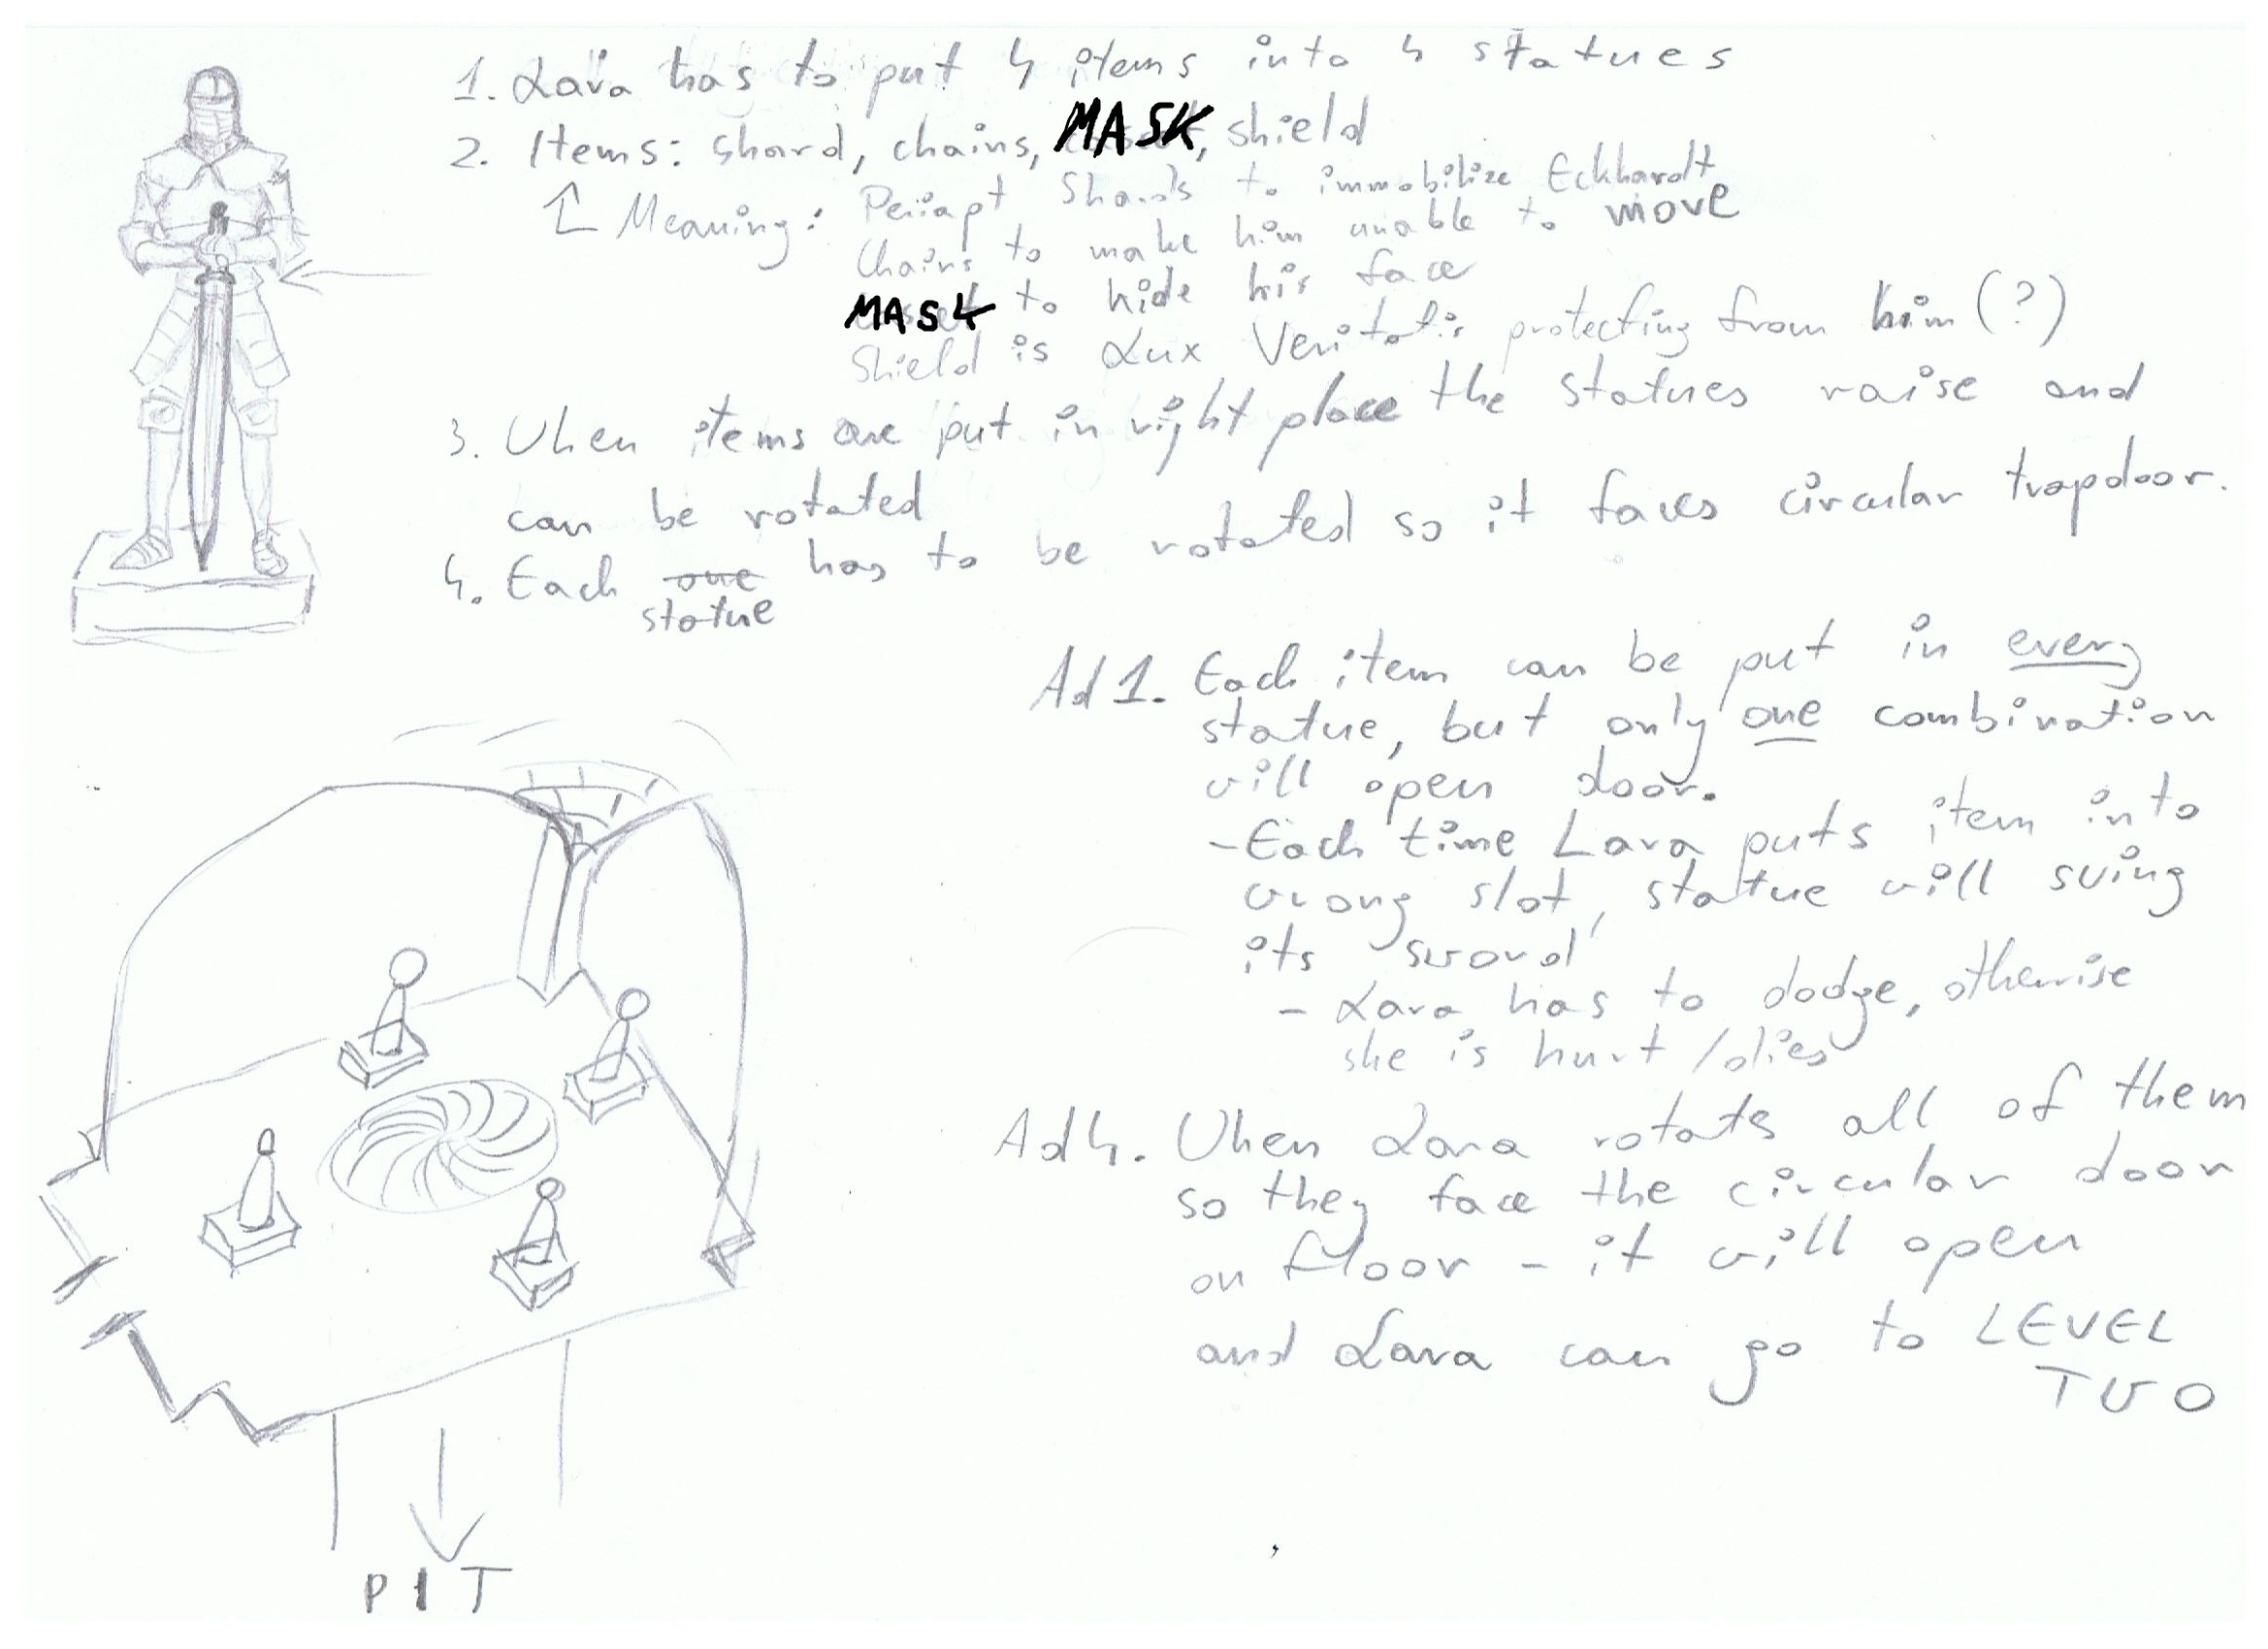 1. Lara has to put 4 items into 4 statues
2. Items: shard, chains, MASK, shield
Meaning: Periapt Shards to immobilize Eckhardt
Chains to make him unable to move
MASK to hide his face
Shield is Lux Veritatis protecting from him (?)
3. When items are put in right place the statues raise and
can be rotated
4. Each one has to be rotated so it faces circular trapdoor.
statue
Ad 1. Each item can be put in every
statue, but only one combination
will open door.
- Each time Lara puts item into
wrong slot, statue will swing
its sword
- Lara has to dodge, otherwise
she is hurt / dies
Ad 4. When Lara rotates all of them
so they face the circular door
on floor - it will open
and Lara can go to LEVEL
TWO
PIT